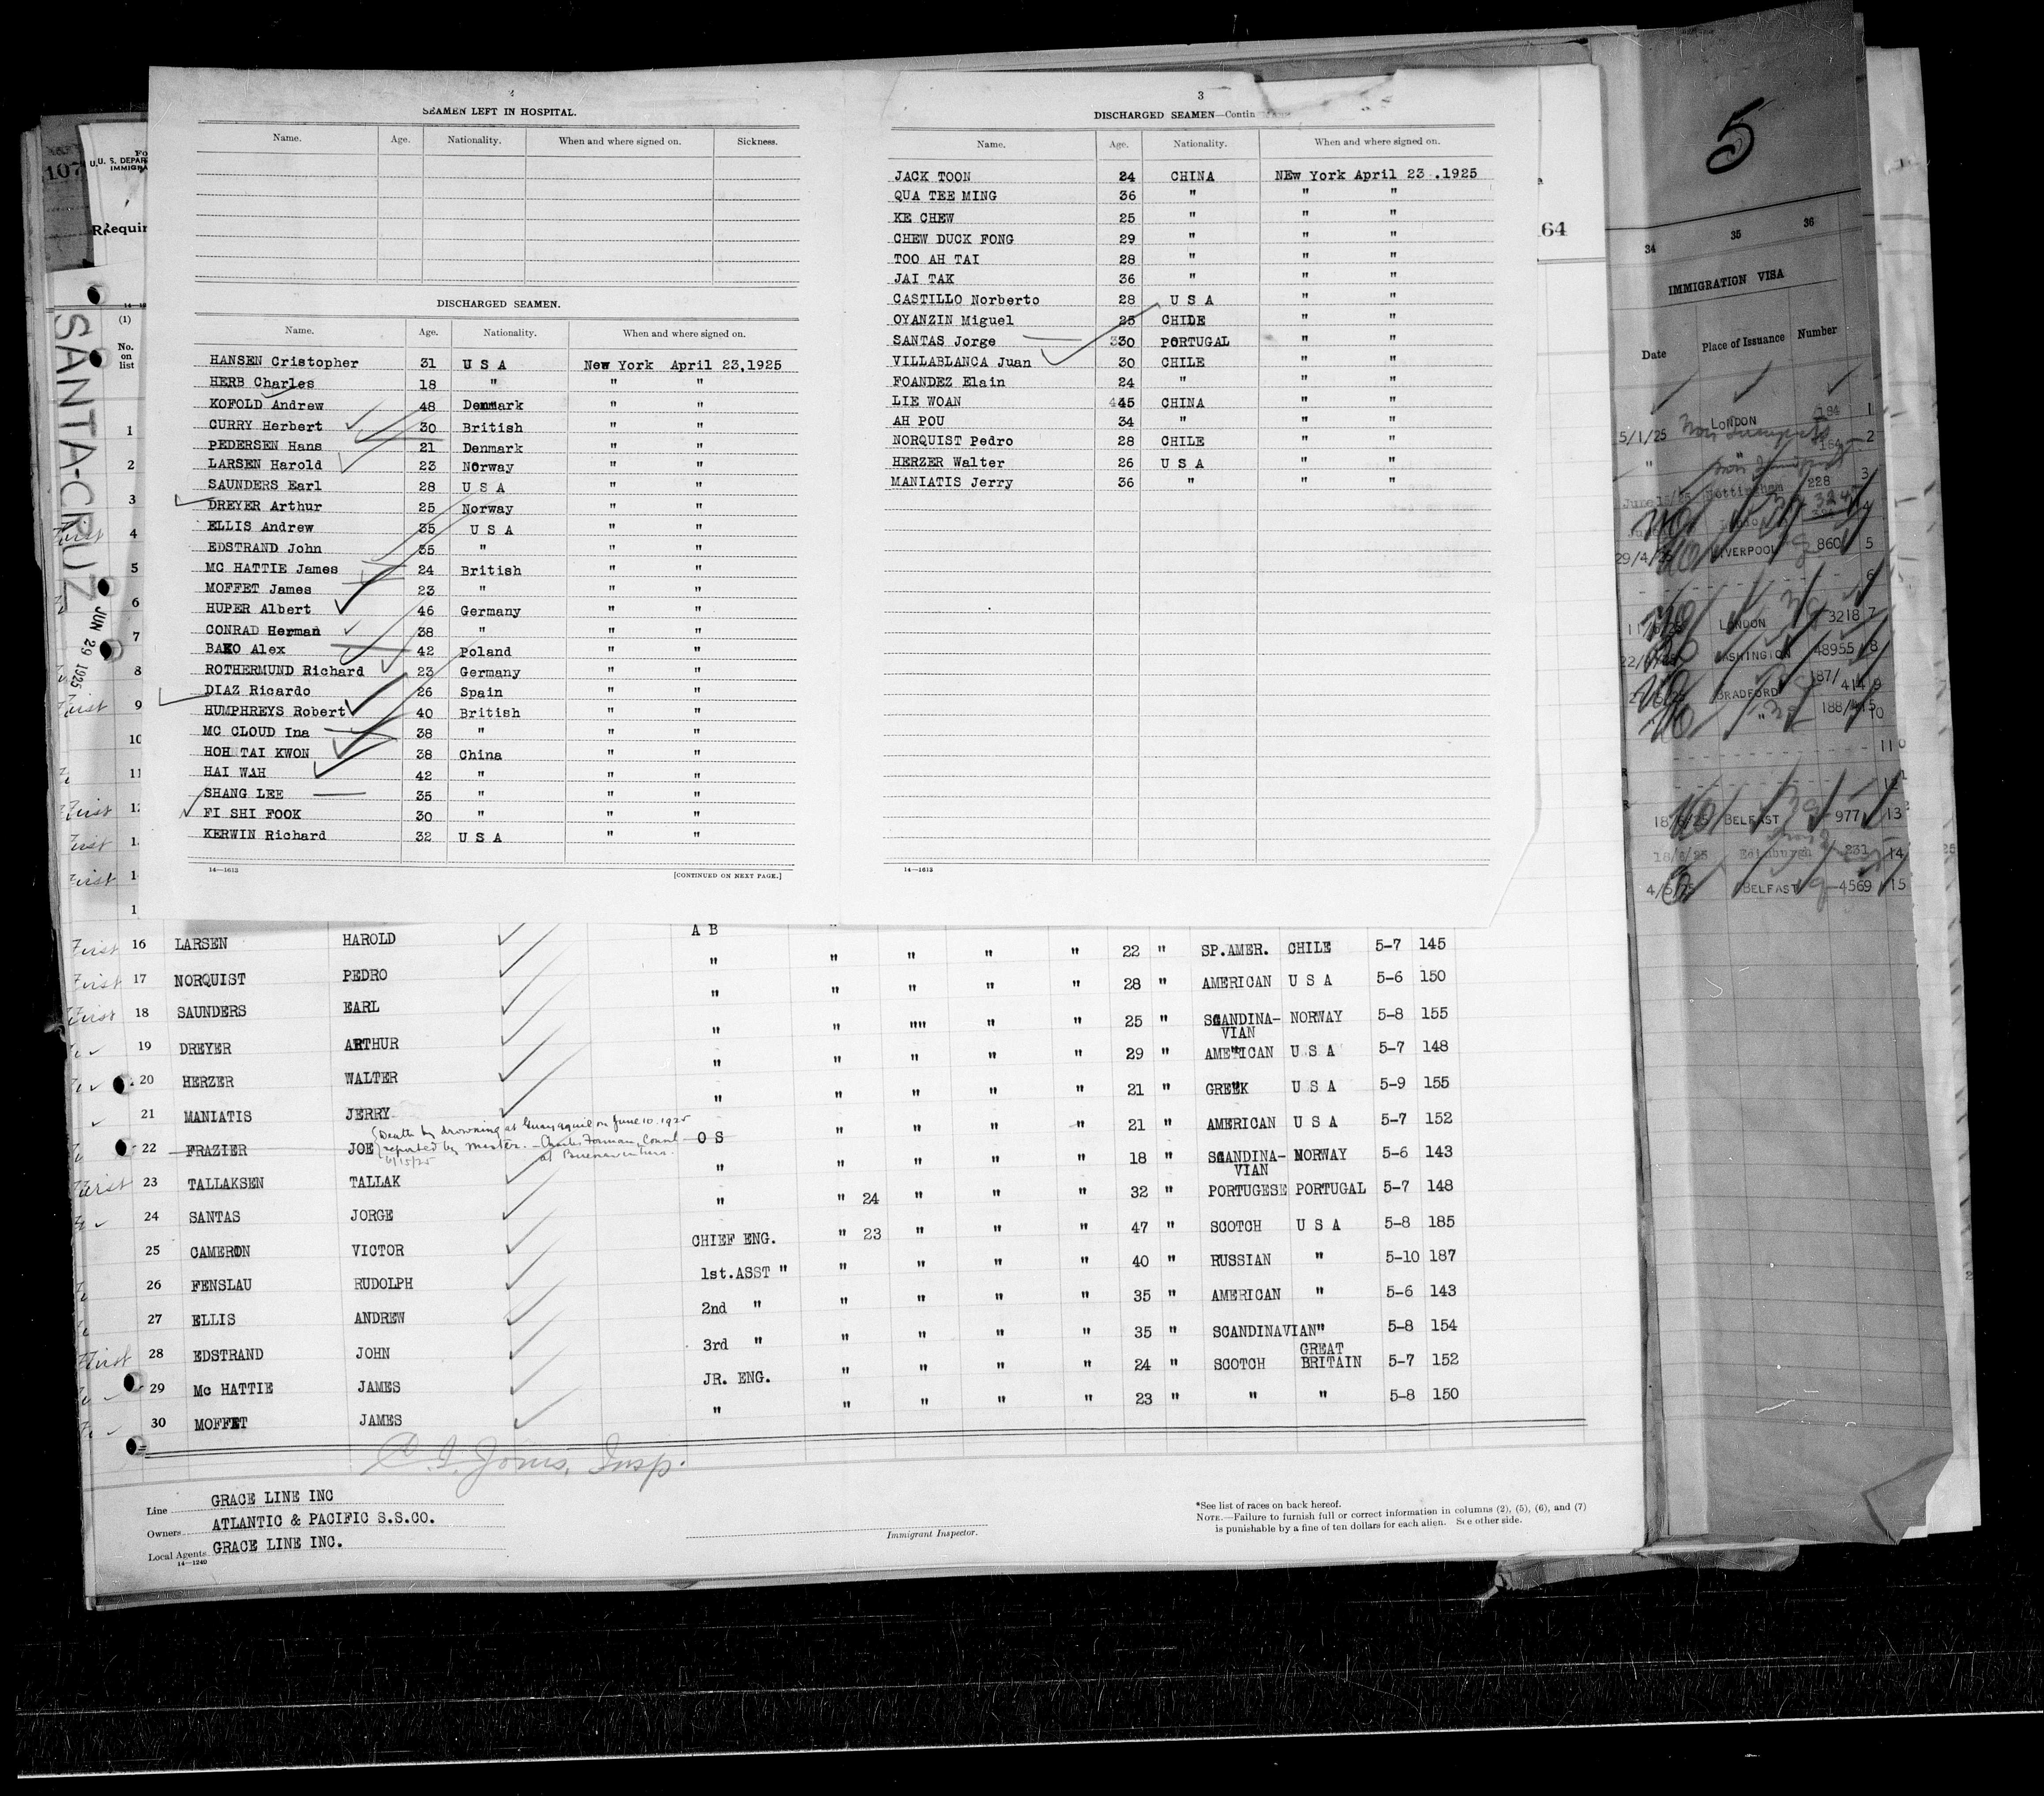 SEAMEN LEFT IN HOSPITAL.
Name. Age. Nationality. When and where signed on. Sickness.
DISCHARGED SEAMEN.
Name. Age. Nationality. When and where signed on.
HANSEN Cristopher 31 U S A New York April 23,1925
HERB Charles 18 " " "
KOFOLD Andrew 48 Denmark " "
CURRY Herbert 30 British " "
PEDERSEN Hans 21 Denmark " "
LARSEN Harold 23 Norway " "
SAUNDERS Earl 28 U S A " "
DREYER Arthur 25 Norway " "
ELLIS Andrew 35 U S A " "
EDSTRAND John 35 " " "
MC HATTIE James 24 British " "
MOFFET James 23 " " "
HUPER Albert 46 Germany " "
CONRAD Herman 38 " " "
BAKO Alex 42 Poland " "
ROTHERMUND Richard 23 Germany " "
DIAZ Ricardo 26 Spain " "
HUMPHREYS Robert 40 British " "
MC CLOUD Ina 38 " " "
HOH TAI KWON 38 China " "
HAI WAH 42 " " "
SHANG LEE 35 " " "
FI SHI FOOK 30 " " "
KERWIN Richard 32 U S A " "
14—1613 [CONTINUED ON NEXT PAGE.]
3
DISCHARGED SEAMEN—Contin
Name. Age. Nationality. When and where signed on.
JACK TOON 24 CHINA NEw York April 23 .1925
QUA TEE MING 36 " " "
KE CHEW 25 " " "
CHEW DUCK FONG 29 " " "
TOO AH TAI 28 " " "
JAI TAK 36 " " "
CASTILLO Norberto 28 U S A " "
OYANZIN Miguel 25 CHIDE " "
SANTAS Jorge 30 PORTUGAL " "
VILLABLANCA Juan 30 CHILE " "
FOANDEZ Elain 24 " " "
LIE WOAN 45 CHINA " "
AH POU 34 " " "
NORQUIST Pedro 28 CHILE " "
HERZER Walter 26 U S A " "
MANIATIS Jerry 36 " " "
14—1613
107
U. S. DEPAR
IMMIGRA
Requir
(1)
No.
on
list
SANTA-CRUZ
JUN 29 1925
1
2
3
4
5
6
7
8
9
10
11
64
5
34 35 36
IMMIGRATION VISA
Date Place of Issuance Number
LONDON 184 1
5/1/25 2
Nottingham 228 3
29/4/25 LIVERPOOL 860 5
6
LONDON 3218 7
WASHINGTON 48955 8
BRADFORD 187/ 414 9
" 188/415 10
11
12
BELFAST 977 13
18/6/25 Edinburgh 231 14
4/5/25 BELFAST 4569 15
A B
First 16 LARSEN HAROLD " " " " " 22 " SP.AMER. CHILE 5-7 145
First 17 NORQUIST PEDRO " " " " " 28 " AMERICAN U S A 5-6 150
First 18 SAUNDERS EARL " " "" " " 25 " SCANDINA-VIAN NORWAY 5-8 155
19 DREYER ARTHUR " " " " " 29 " AMERICAN U S A 5-7 148
20 HERZER WALTER " " " " " 21 " GREEK U S A 5-9 155
21 MANIATIS JERRY " " " " 21 " AMERICAN U S A 5-7 152
Death by drowning at Guayaquil on June 10, 1925
reported by master. - Charles Forman, Consul
at Buenaventura.
6/15/25
22 FRAZIER JOE O S " " " " 18 " SCANDINA-VIAN NORWAY 5-6 143
First 23 TALLAKSEN TALLAK " " 24 " " " 32 " PORTUGESE PORTUGAL 5-7 148
24 SANTAS JORGE " " 23 " " " 47 " SCOTCH U S A 5-8 185
25 CAMERON VICTOR CHIEF ENG. " " " " 40 " RUSSIAN " 5-10 187
26 FENSLAU RUDOLPH 1st.ASST " " " " " 35 " AMERICAN " 5-6 143
27 ELLIS ANDREW 2nd " " " " " 35 " SCANDINAVIAN " 5-8 154
First 28 EDSTRAND JOHN 3rd " " " " " 24 " SCOTCH GREAT BRITAIN 5-7 152
29 Mc HATTIE JAMES JR. ENG. " " " " 23 " " " 5-8 150
30 MOFFET JAMES "
Jones, Insp.
Line GRACE LINE INC
Owners ATLANTIC & PACIFIC S.S.CO.
Local Agents GRACE LINE INC.
14—1240
Immigrant Inspector.
*See list of races on back hereof.
NOTE.—Failure to furnish full or correct information in columns (2), (5), (6), and (7)
is punishable by a fine of ten dollars for each alien. See other side.